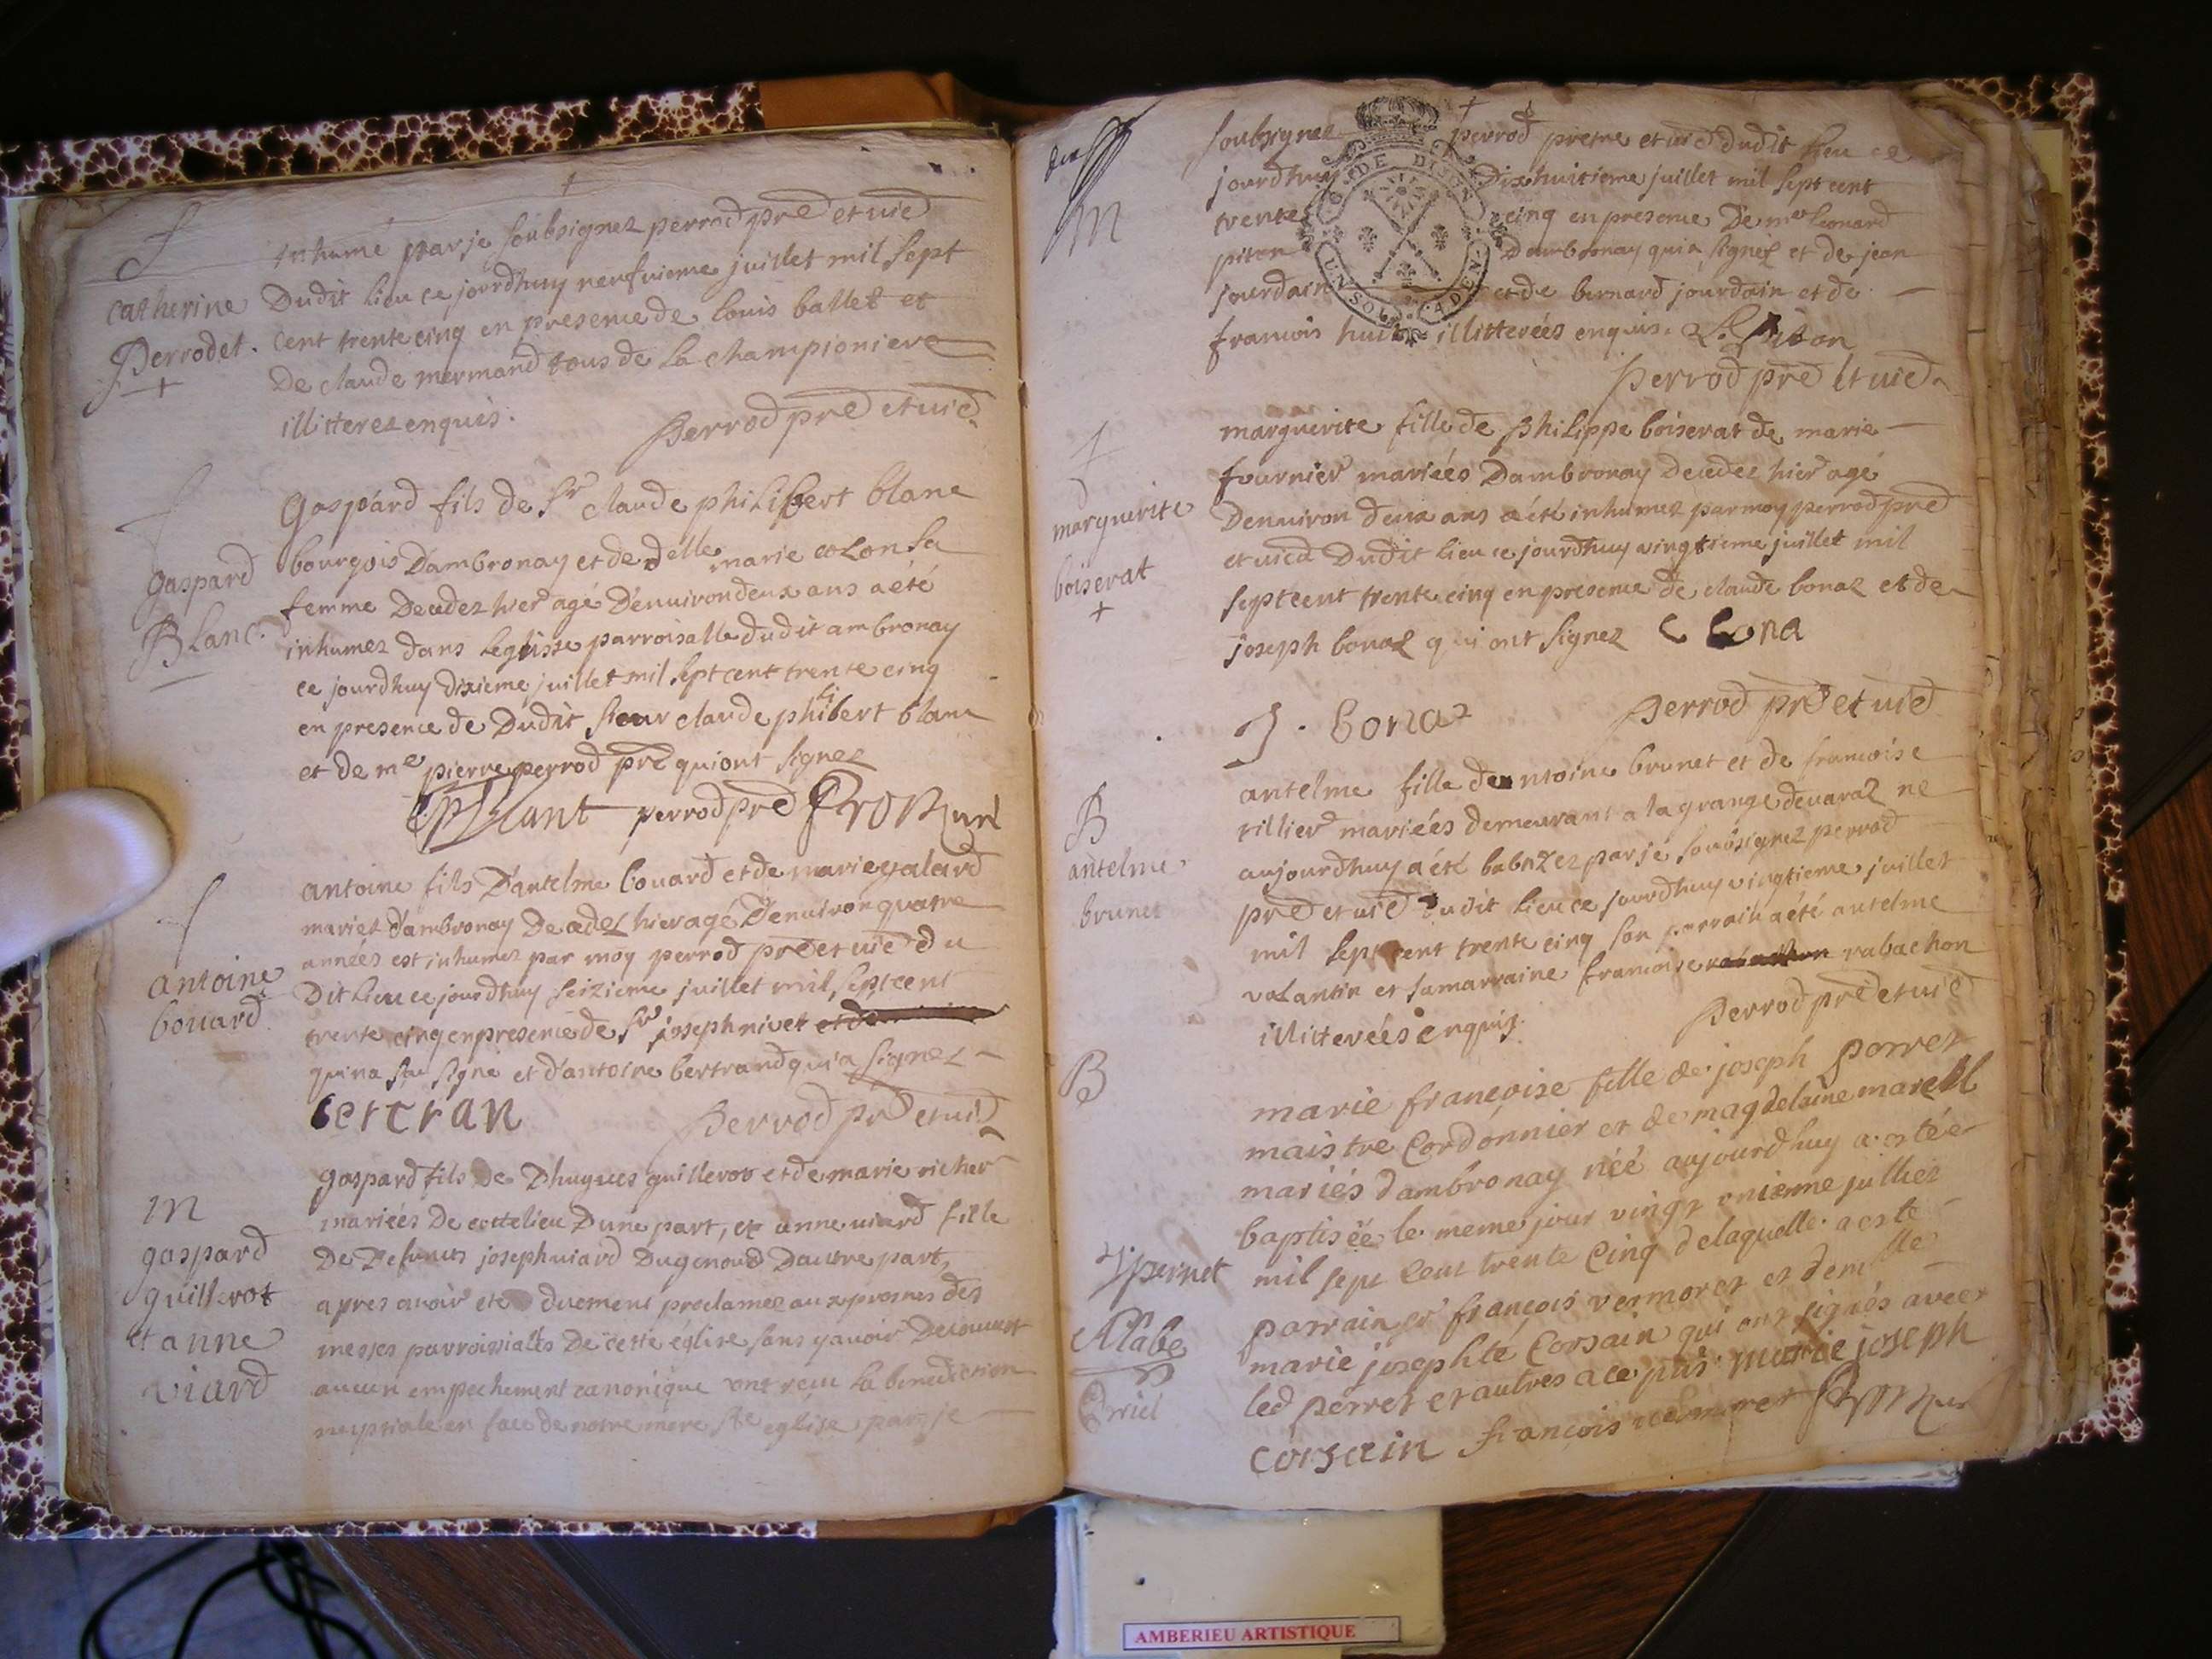 inhumé par je soubsignez perrod pre et vic
catherine
perrodet.
Dudit lieu ce jourdhuy neufvieme juillet mil sept
cent trente cinq en presence de louis ballet et
De claude mermand tous de la championiere
illitterez enquis.
perrod pre et vic
gaspard
Blanc.
Gaspard fils de Sr claude philibert blanc
bourgois Dambronay et de delle marie colon sa
femme Decedez hier agé Denuiron deux ans a été
inhumez dans leglisse parroisalle dudit ambronay
ce jourdhuy dixieme juillet mil sept cent trente cinq
en presence de Dudit sieur claude philibert blanc
et de me pierre perrod pre qui ont signez
perrod pre
antoine
bouard
antoine fils D'antelme bouard et de marie galard
mariez dambronay Decedez hier agé Denuiron quatre
années est inhumez par moy perrod pre et vic du
Dit Lieu ce jourdhuy seizieme juillet mil sept cent
trente cinq en presence de Sr joseph nivet et de
qui na sceu signé et d'antoine bertrand qui a signez
bertran
perrod pre et vic
M
gaspard
guillerot
et anne
viard
gaspard fils de Dhugues guillerot et de marie richer
mariées De cottelieu Dune part, et anne viard fille
De Defuncts joseph viard Dugenoud Dautre part,
apres avoir eté duement proclamez aux prosnes des
messes parroissiales De cette église sans y avoir Decouvert
aucun empechement canonique ont recu La benediction
nuptiale en face de notre mere ste eglise par je
M
soubsignez perrod pretre et vic dudit lieu ce
jourdhuy Dixhuitieme juillet mil sept cent
trente cinq en presence De me leonard
piton Dambronay qui a signez et de jean
jourdain et de bernard jourdain et de
francois huit illitterées enquis. L. piton
G. DE DIJON
UN SOL
perrod pre et vic
marguerite
boiserat
marguerite fille de philippe boiserat de marie
fournier mariées Dambronay Decedez hier agé
Denuiron deux ans a été inhumez par moy perrod pre
et vic Dudit lieu ce jourdhuy vingtieme juillet mil
sept cent trente cinq en presence de claude bonaz et de
joseph bonaz qui ont signez C bona
J. bonaz
perrod pre et vic
B
antelme
brunet
antelme fille de antoine brunet et de francoise
tillier mariées demeurant a la grange devaraz ne
aujourdhuy a été babtizez par je soubsignez perrod
pre et vic dudit lieu ce jourdhuy vingtieme juillet
mil sept cent trente cinq son parrain a été antelme
volantin et sa marraine francoise rabachon
illitterées enquis.
perrod pre et vic
B
marie françoise fille de joseph perret
maistre Cordonnier et de magdelaine marell
mariés dambronay néé aujourdhuy a estée
baptiséé le meme jour vingt onieme julliet
mil sept cent trente Cinq de laquelle a esté
parrain sr françois vermoret et demlle
marie josephté Corsain qui ont signés avec
led perret et autres a ce marie joseph
corsain françois
AMBERIEU ARTISTIQUE